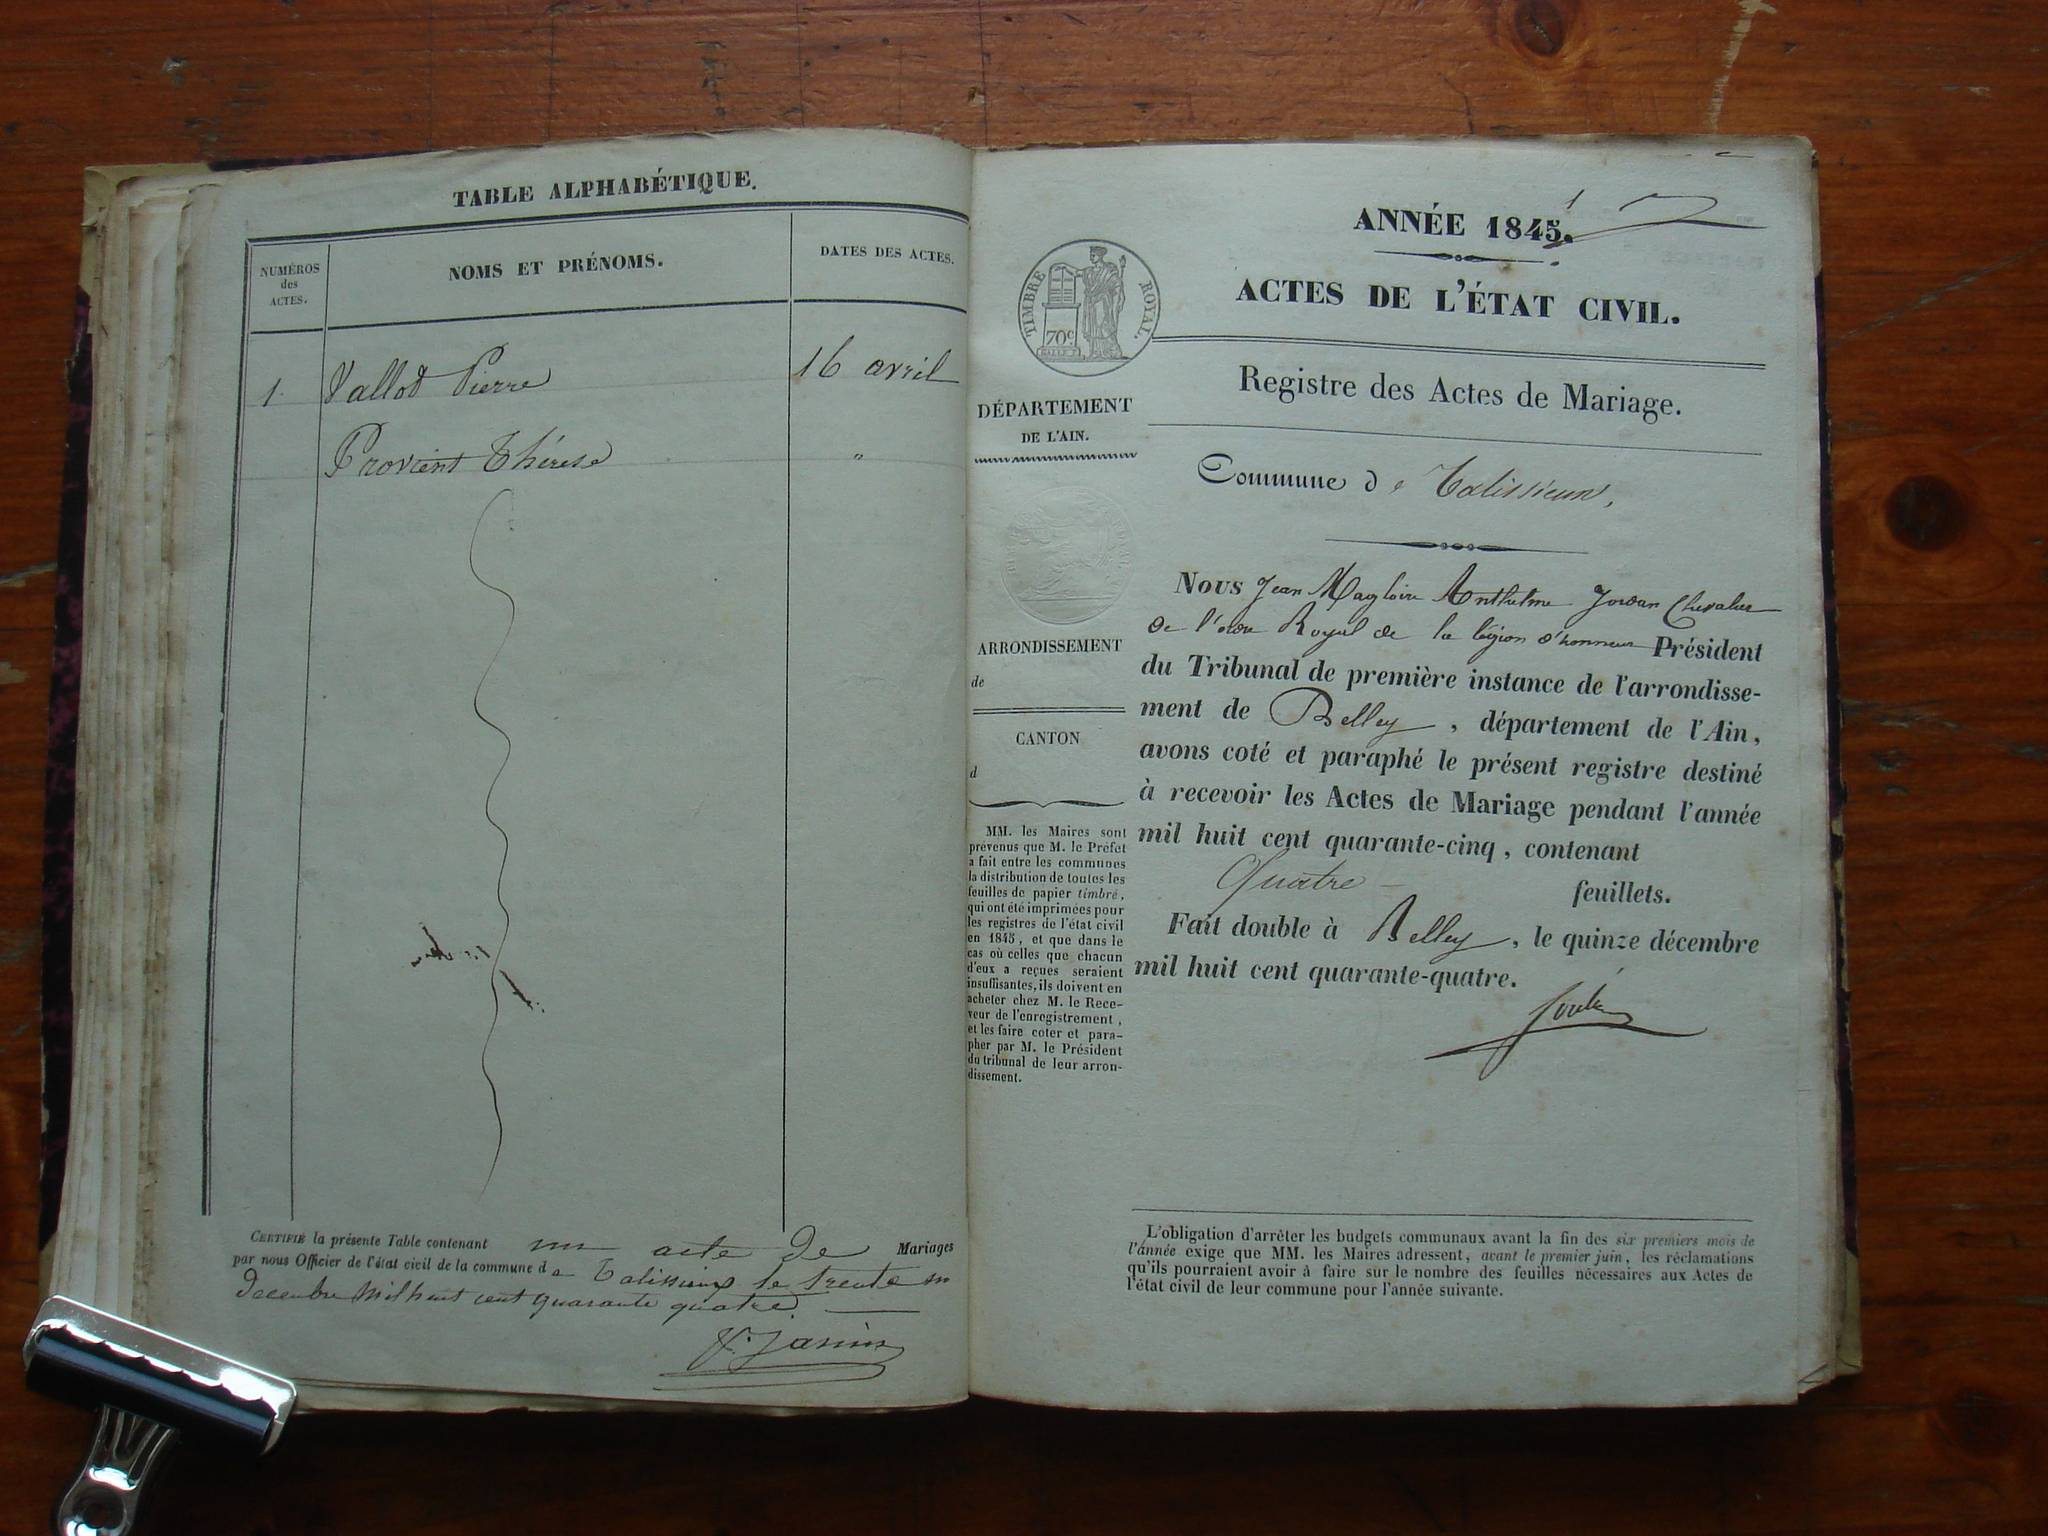 TABLE ALPHABÉTIQUE.
NUMÉROS
des
ACTES.
NOMS ET PRÉNOMS.
DATES DES ACTES.
1. Vallod Pierre 16 avril
Provient Thérèse "
CERTIFIÉ la présente Table contenant un acte de Mariages
par nous Officier de l'état civil de la commune de Talissieux le trente un
Decembre Mil huit cent quarante quatre
J. Janin
1
ANNÉE 1845.
ACTES DE L'ÉTAT CIVIL.
TIMBRE ROYAL.
70c
Registre des Actes de Mariage.
DÉPARTEMENT
DE L'AIN.
Commune de Talissieux,
ARRONDISSEMENT
de
CANTON
d
MM. les Maires sont
prévenus que M. le Préfet
a fait entre les communes
la distribution de toutes les
feuilles de papier timbré,
qui ont été imprimées pour
les registres de l'état civil
en 1845, et que dans le
cas où celles que chacun
d'eux a reçues seraient
insuffisantes, ils doivent en
acheter chez M. le Rece-
veur de l'enregistrement,
et les faire coter et para-
pher par M. le Président
du tribunal de leur arron-
dissement.
Nous Jean Magloire Anthelme Jordan Chevalier
de l'ordre Royal de la légion d'honneur Président
du Tribunal de première instance de l'arrondisse-
ment de Belley, département de l'Ain,
avons coté et paraphé le présent registre destiné
à recevoir les Actes de Mariage pendant l'année
mil huit cent quarante-cinq, contenant
Quatre feuillets.
Fait double à Belley, le quinze décembre
mil huit cent quarante-quatre.
L'obligation d'arrêter les budgets communaux avant la fin des six premiers mois de
l'année exige que MM. les Maires adressent, avant le premier juin, les réclamations
qu'ils pourraient avoir à faire sur le nombre des feuilles nécessaires aux Actes de
l'état civil de leur commune pour l'année suivante.